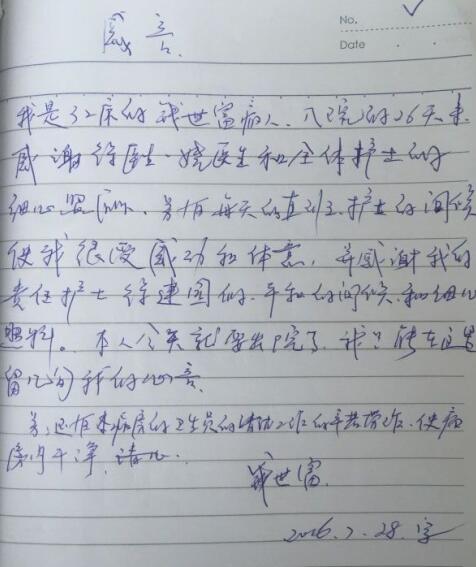 感言
No.
Date
我是32床的钱世富病人.入院的26天来
感谢徐医生.饶医生和全体护士的
细心照顾.另有每天的直到三护士的问候
使我很受感动和体意,并感谢我的
责任护士徐建圆的.平和的问候.和细心
照料。本人今天就要出院了.我只能在这里
留几句我的心言.
另,还有来病房的卫生员的清洁工作的辛苦劳作.使病
房内干净,清
世富.
2016.7.28.字